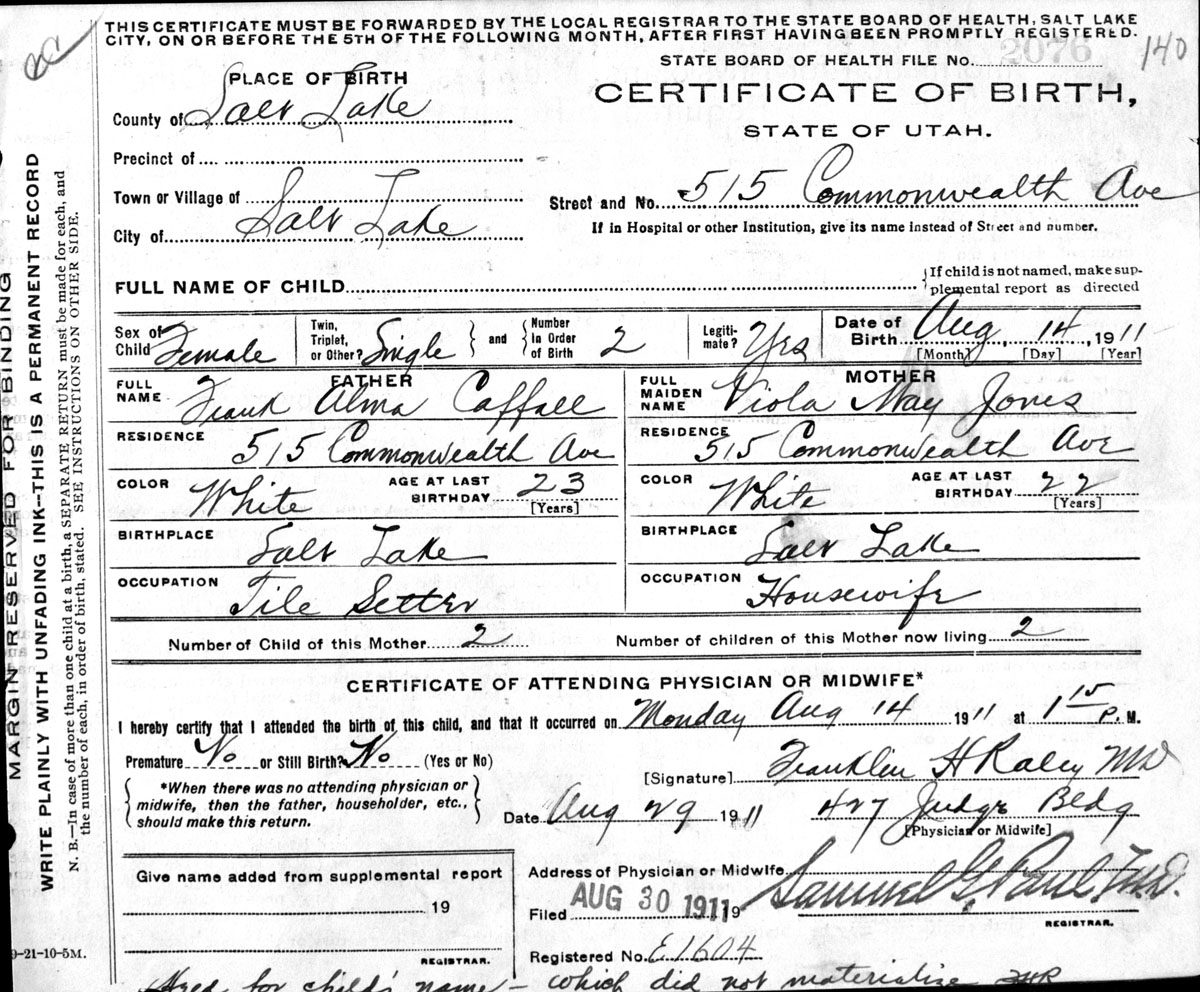 THIS CERTIFICATE MUST BE FORWARDED BY THE LOCAL REGISTRAR TO THE STATE BOARD OF HEALTH, SALT LAKE
CITY, ON OR BEFORE THE 5TH OF THE FOLLOWING MONTH, AFTER FIRST HAVING BEEN PROMPTLY REGISTERED.
STATE BOARD OF HEALTH FILE No. 2076 140
PLACE OF BIRTH
CERTIFICATE OF BIRTH,
STATE OF UTAH.
County of Salt Lake
Precinct of
Town or Village of
Street and No. 515 Commonwealth Ave
City of Salt Lake
If in Hospital or other Institution, give its name instead of Street and number.
FULL NAME OF CHILD
If child is not named, make sup-
plemental report as directed
Sex of Child Female
Twin, Triplet, or Other? Single and Number In Order of Birth 2
Legiti-mate? Yes
Date of Birth Aug 14, 1911
[Month] [Day] [Year]
FATHER
MOTHER
FULL NAME Frank Alma Caffall
FULL MAIDEN NAME Viola May Jones
RESIDENCE 515 Commonwealth Ave
RESIDENCE 515 Commonwealth Ave
COLOR White AGE AT LAST BIRTHDAY 23 [Years]
COLOR White AGE AT LAST BIRTHDAY 22 [Years]
BIRTHPLACE Salt Lake
BIRTHPLACE Salt Lake
OCCUPATION Tile Setter
OCCUPATION Housewife
Number of Child of this Mother 2 Number of children of this Mother now living 2
CERTIFICATE OF ATTENDING PHYSICIAN OR MIDWIFE*
I hereby certify that I attended the birth of this child, and that it occurred on Monday Aug 14 1911 at 1 15 P. M.
Premature No or Still Birth? No (Yes or No)
[Signature] Franklin H Raley MD
*When there was no attending physician or
midwife, then the father, householder, etc.,
should make this return.
Date Aug 29 1911 427 Judge Bldg
[Physician or Midwife]
Give name added from supplemental report
19
REGISTRAR.
Address of Physician or Midwife
Filed AUG 30 1911 19 Samuel G. Paul, M.D.
REGISTRAR.
Registered No. E1604
Asked for child's name - which did not materialize FHR
MARGIN RESERVED FOR BINDING
WRITE PLAINLY WITH UNFADING INK--THIS IS A PERMANENT RECORD
N. B.—In case of more than one child at a birth, a SEPARATE RETURN must be made for each, and
the number of each, in order of birth, stated. SEE INSTRUCTIONS ON OTHER SIDE.
9-21-10-5M.